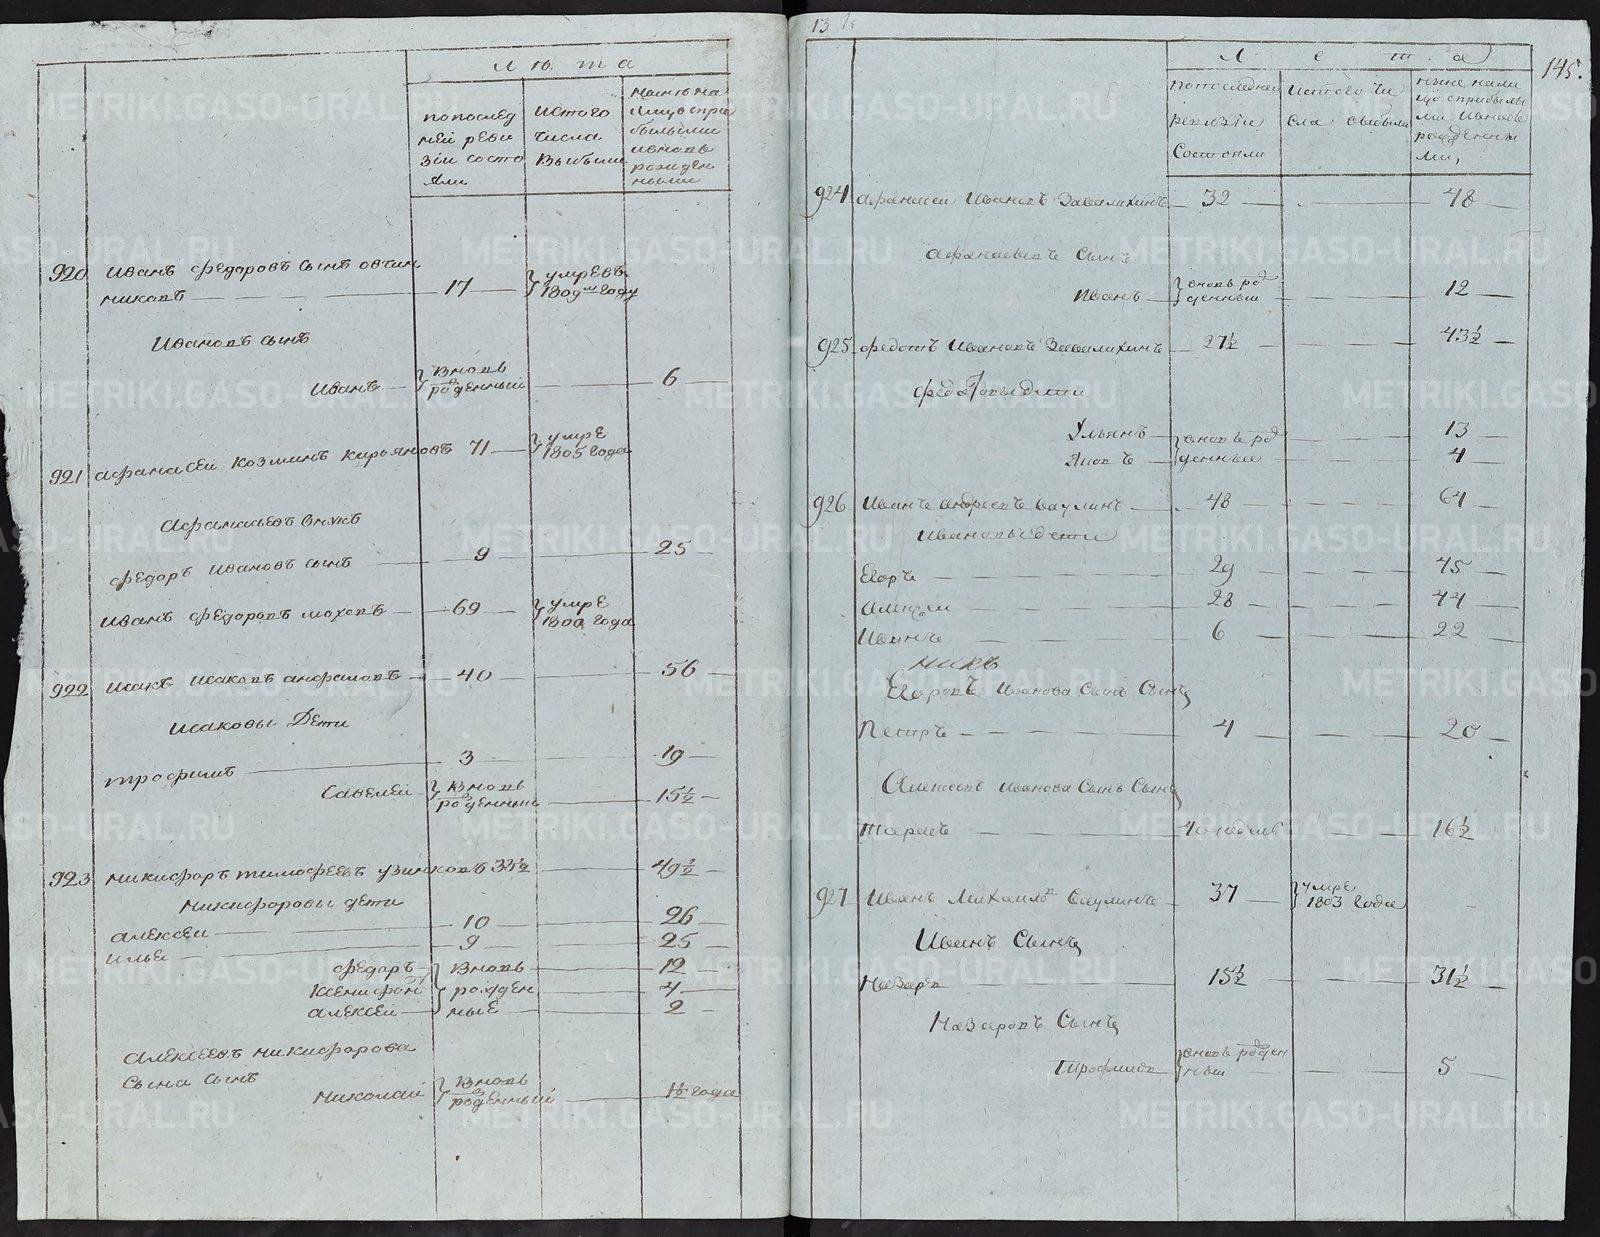 лѣта
по послед
ней реви
зiи состо
яли
ис того
числа
выбыли
ныне на
лицо с при
былыми
и вновь
рожден
ными
920 Иванъ Федоровъ сынъ Овчин
никовъ 17 умре въ
1809м году
Ивановъ сынъ
Иванъ вновь
роденный 6
921 Афанасей Козминъ Кирьяновъ 71 умре
1805 года
Афанасьевъ внукъ
Федоръ Ивановъ сынъ 9 25
Иванъ Федоровъ Моховъ 69 умре
1800 года
922 Исакъ Исаковъ Анфаловъ 40 56
Исаковы дети
Трофимъ 3 19
Савелей вновь
роденный 15½
923 Никифоръ Тимофеевъ Узиковъ 33½ 49½
Никифоровы дети
Алексеи 10 26
Илья 9 25
Федоръ вновь 12
Ксенифон рожден 4
Алексей ные 2
Алексеевъ Никифорова
сына сынъ
Николай вновь
роденный 1½ года
13
145.
Лета
по последней
ревизiи
состояли
ис того чи
сла выбыли
ныне нали
цо с прибылы
ми и вновь
рожденны
ми,
924 Афанасеи Ивановъ Завалихинъ 32 48
Афанасьевъ сынъ
Иванъ вновь ро
денныи 12
925 Федотъ Ивановъ Завалихинъ 27½ 43½
Федотовы дети
Ульянъ вновь ро 13
Яковъ денные 4
926 Иванъ Андреевъ Ваулинъ 48 64
Ивановы дети
Егоръ 29 45
Алексеи 28 44
Иванъ 6 22
Егоровъ Иванова сынъ сынъ
Петръ 4 20
Алексеевъ Иванова сынъ сынъ
Тарасъ 40 недель 16½
927 Иванъ Михаиловъ Ваулинъ 37 умре
1803 года
Иванъ сынъ
Назаръ 15½ 31½
Назаровъ сынъ
Трофимъ вновь рожден
ныи 5
METRIKI.GASO-URAL.RU